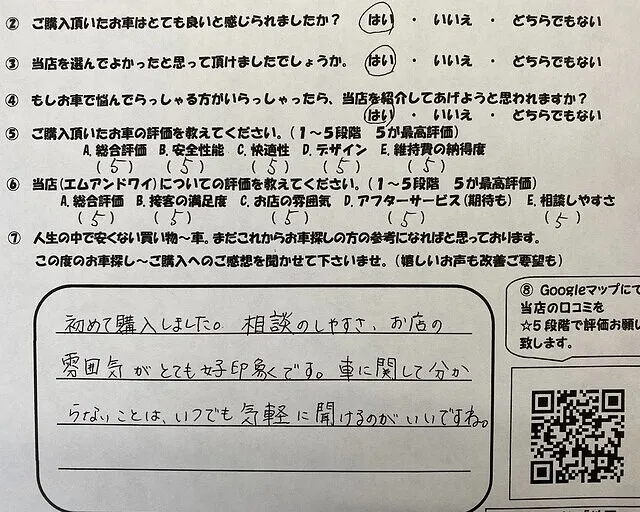 ② ご購入頂いたお車はとても良いと感じられましたか？ はい ・ いいえ ・ どちらでもない
③ 当店を選んでよかったと思って頂けましたでしょうか。 はい ・ いいえ ・ どちらでもない
④ もしお車で悩んでらっしゃる方がいらっしゃったら、当店を紹介してあげようと思われますか？
はい ・ いいえ ・ どちらでもない
⑤ ご購入頂いたお車の評価を教えてください。（１～５段階　５が最高評価）
A. 総合評価 B. 安全性能 C. 快適性 D. デザイン E. 維持費の納得度
（5） （5） （5） （5） （5）
⑥ 当店（エムアンドワイ）についての評価を教えてください。（１～５段階　５が最高評価）
A. 総合評価 B. 接客の満足度 C. お店の雰囲気 D. アフターサービス（期待も） E. 相談しやすさ
（5） （5） （5） （5） （5）
⑦ 人生の中で安くない買い物～車。まだこれからお車探しの方の参考になればと思っております。
この度のお車探し～ご購入へのご感想を聞かせて下さいませ。（嬉しいお声も改善ご要望も）
初めて購入しました。相談のしやすさ、お店の
雰囲気がとても好印象くです。車に関して分か
らないことは、いつでも気軽に聞けるのがいいですね。
⑧ Googleマップにて
当店の口コミを
☆５段階で評価お願い
致します。